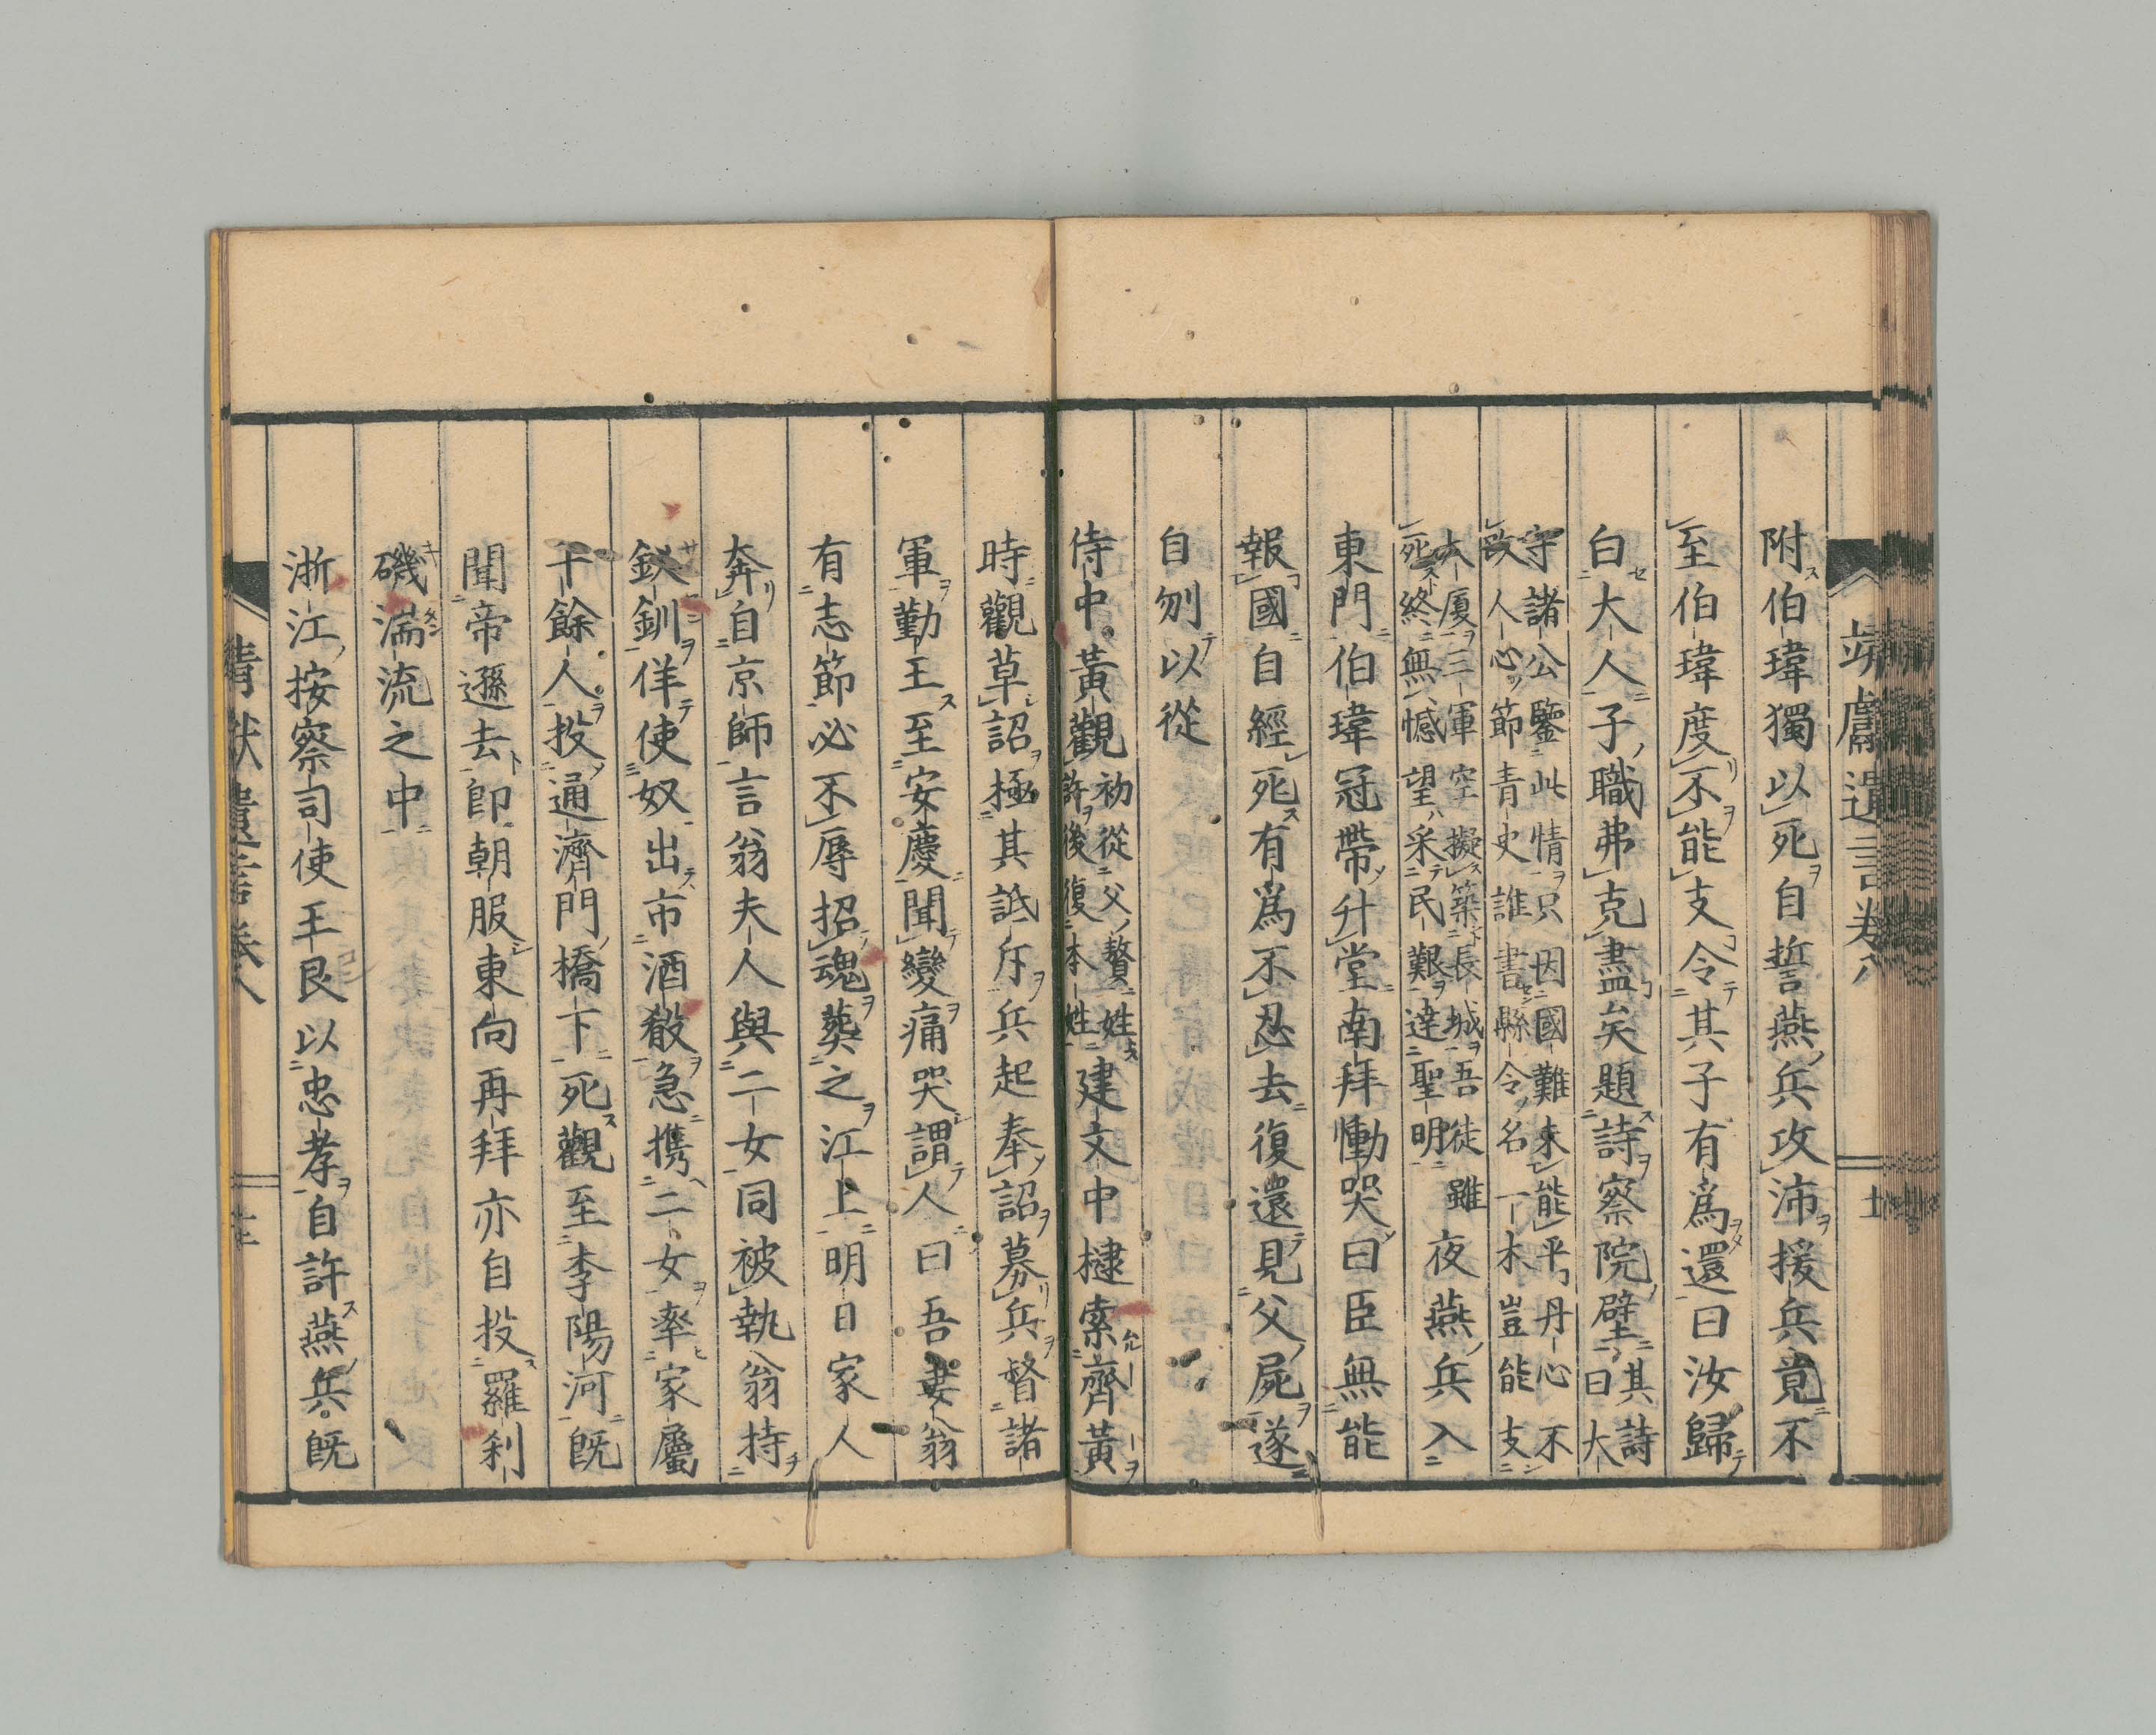 靖獻遺言卷八
附伯瑋獨以死自誓燕兵攻沛援兵竟不
至伯瑋度不能支令其子有爲還曰汝歸
白大人子職弗克盡矣題詩察院壁其詩
曰大
守諸公鑒此情只因國難未能平丹心不
改人心節青史誰書縣令名一木豈能支
大厦三軍空擬築長城吾徒雖
死終無憾望采民艱達聖明
夜燕兵入
東門伯瑋冠帶升堂南拜慟哭曰臣無能
報國自經死有爲不忍去復還見父屍遂
自刎以從
侍中黃觀
初從父贅姓
許後復本姓
建文中逮索齊黃
時觀草詔極其詆斥兵起奉詔募兵督諸
軍勤王至安慶聞變痛哭謂人曰吾妻翁
有志節必不辱招魂葬之江上明日家人
奔自京師言翁夫人與二女同被執翁持
釵釧佯使奴出市酒殽急攜二女率家屬
十餘人投通濟門橋下死觀至李陽河既
聞帝遜去卽朝服東向再拜亦自投羅刹
磯湍流之中
浙江按察司使王艮以忠孝自許燕兵既
靖獻遺言卷八